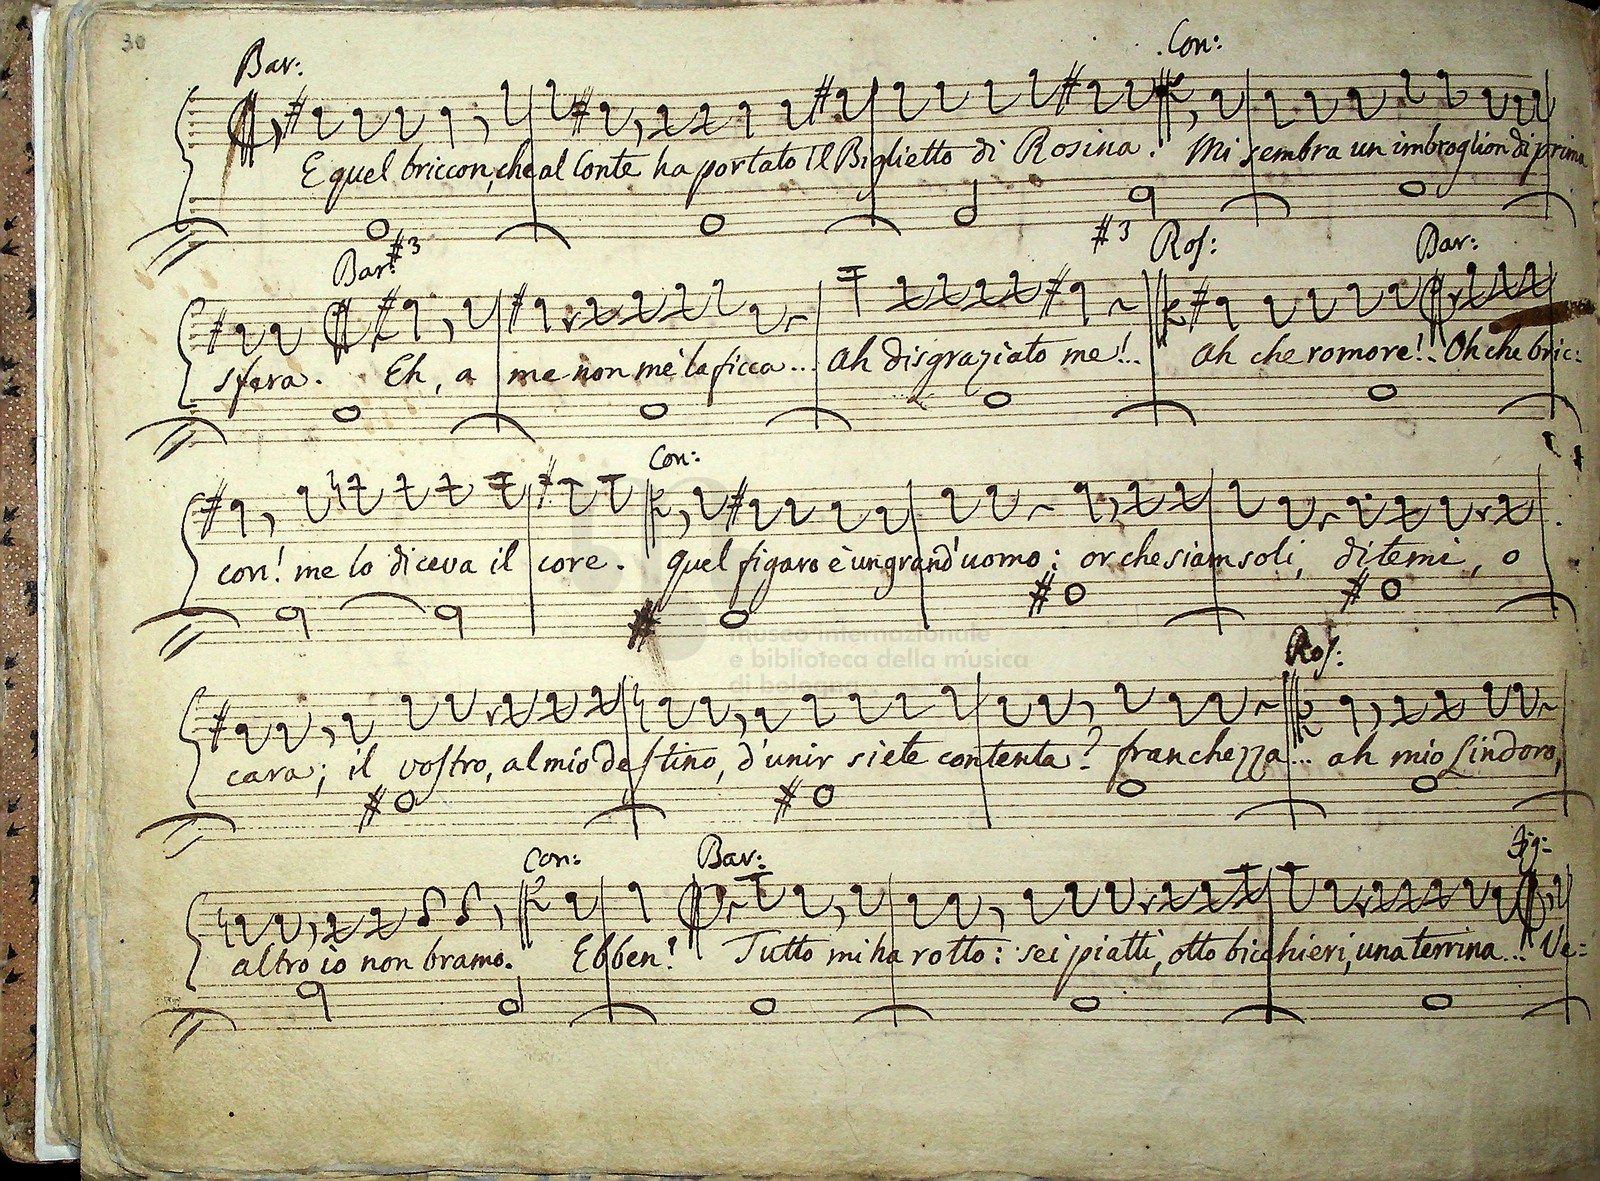 30
Bar: Con:
E quel briccon, che al Conte ha portato il Biglietto di Rosina! Mi sembra un imbroglion di prima
#3 #3
Bar: Ros: Bar:
sfera. Eh, a me non me la ficca... ah disgraziato me!.. ah che romore!.. Oh che bric:
Con:
con! me lo diceva il core. quel figaro è un grand'uomo: or che siam soli, ditemi, o
museo internazionale
e biblioteca della musica
di bologna
Ros:
cara; il vostro, al mio destino, d'unir siete contenta? franchezza... ah mio Lindoro,
Con: Bar: Fig:
altro io non bramo. Ebben! Tutto mi ha rotto: sei piatti, otto bicchieri, una terrina... Ve=